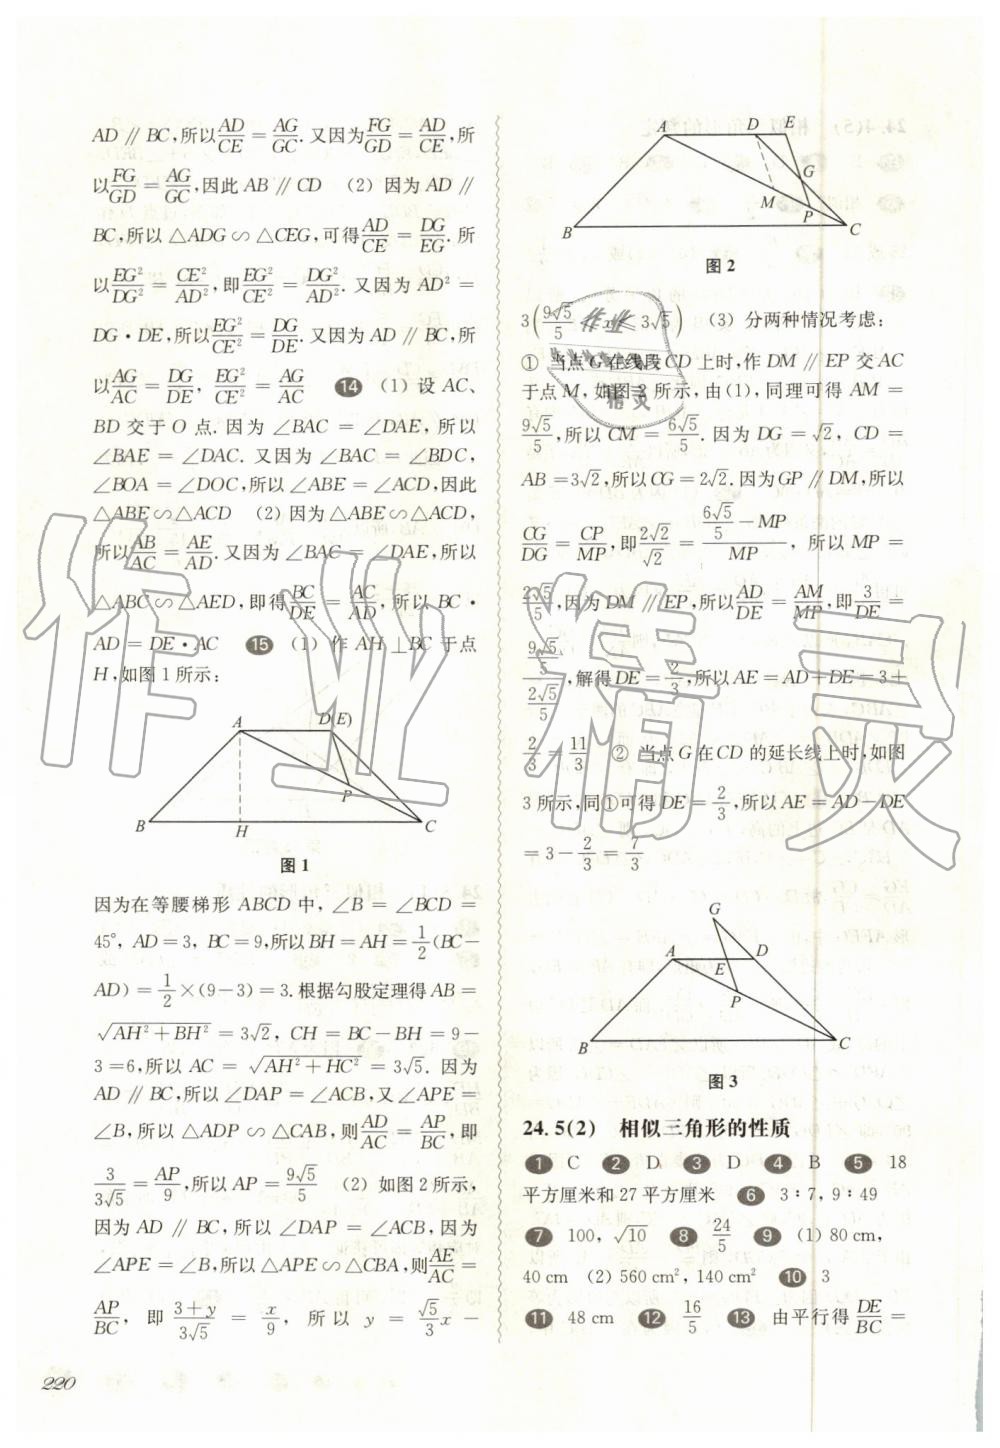 AD∥BC,所以AD/CE=AG/GC.又因为FG/GD=AD/CE,所
以FG/GD=AG/GC,因此AB∥CD (2) 因为AD∥
BC,所以△ADG∽△CEG,可得AD/CE=DG/EG.所
以EG²/DG²=CE²/AD²,即EG²/CE²=DG²/AD².又因为AD²=
DG·DE,所以EG²/CE²=DG/DE.又因为AD∥BC,所
以AG/AC=DG/DE,EG²/CE²=AG/AC 14 (1) 设AC、
BD交于O点.因为∠BAC=∠DAE,所以
∠BAE=∠DAC.又因为∠BAC=∠BDC,
∠BOA=∠DOC,所以∠ABE=∠ACD,因此
△ABE∽△ACD (2) 因为△ABE∽△ACD,
所以AB/AC=AE/AD.又因为∠BAC=∠DAE,所以
△ABC∽△AED,即得BC/DE=AC/AD,所以BC·
AD=DE·AC 15 (1) 作AH⊥BC于点
H,如图1所示:
A D(E)
P
B H C
图1
因为在等腰梯形ABCD中,∠B=∠BCD=
45°,AD=3,BC=9,所以BH=AH=1/2(BC-
AD)=1/2×(9-3)=3.根据勾股定理得AB=
√(AH²+BH²)=3√2,CH=BC-BH=9-
3=6,所以AC=√(AH²+HC²)=3√5.因为
AD∥BC,所以∠DAP=∠ACB,又∠APE=
∠B,所以△ADP∽△CAB,则AD/AC=AP/BC,即
3/(3√5)=AP/9,所以AP=9√5/5 (2) 如图2所示,
因为AD∥BC,所以∠DAP=∠ACB,因为
∠APE=∠B,所以△APE∽△CBA,则AE/AC=
AP/BC,即(3+y)/(3√5)=x/9,所以y=(√5/3)x-
220
A D E
G
M P
B C
图2
3(9√5/5≤x≤3√5) (3) 分两种情况考虑:
① 当点G在线段CD上时,作DM∥EP交AC
于点M,如图2所示,由(1),同理可得AM=
9√5/5,所以CM=6√5/5.因为DG=√2,CD=
AB=3√2,所以CG=2√2.因为GP∥DM,所以
CG/DG=CP/MP,即2√2/√2=(6√5/5-MP)/MP,所以MP=
2√5/5,因为DM∥EP,所以AD/DE=AM/MP,即3/DE=
(9√5/5)/(2√5/5),解得DE=2/3,所以AE=AD+DE=3+
2/3=11/3 ② 当点G在CD的延长线上时,如图
3所示,同①可得DE=2/3,所以AE=AD-DE
=3-2/3=7/3
G
A E D
P
B C
图3
24.5(2) 相似三角形的性质
1 C 2 D 3 D 4 B 5 18
平方厘米和27平方厘米 6 3∶7,9∶49
7 100,√10 8 24/5 9 (1) 80 cm,
40 cm (2) 560 cm²,140 cm² 10 3
11 48 cm 12 16/5 13 由平行得DE/BC=
作业精灵
作业
精灵